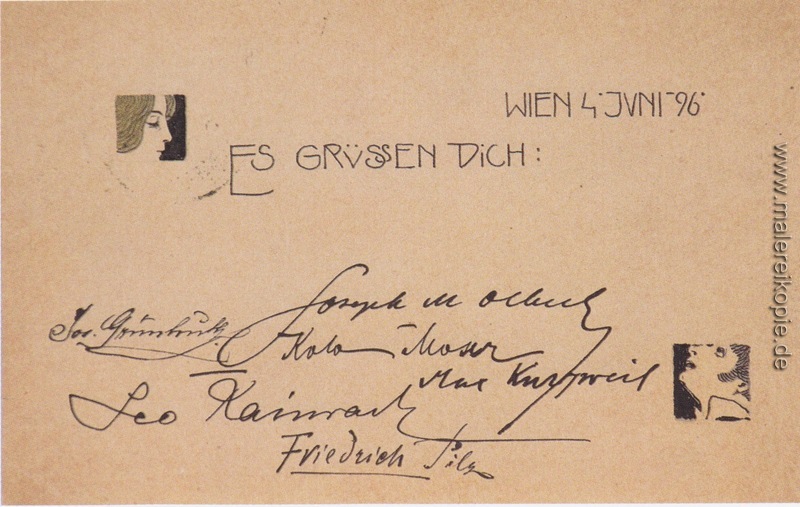 WIEN 4·JVNI·96·
ES GRÜSSEN DiCH:
Joseph M Olbrich
Jos. Grünhut
Kolo Moser
Max Kurzweil
Leo Kainradl
Friedrich Pilz
www.malereikopie.de